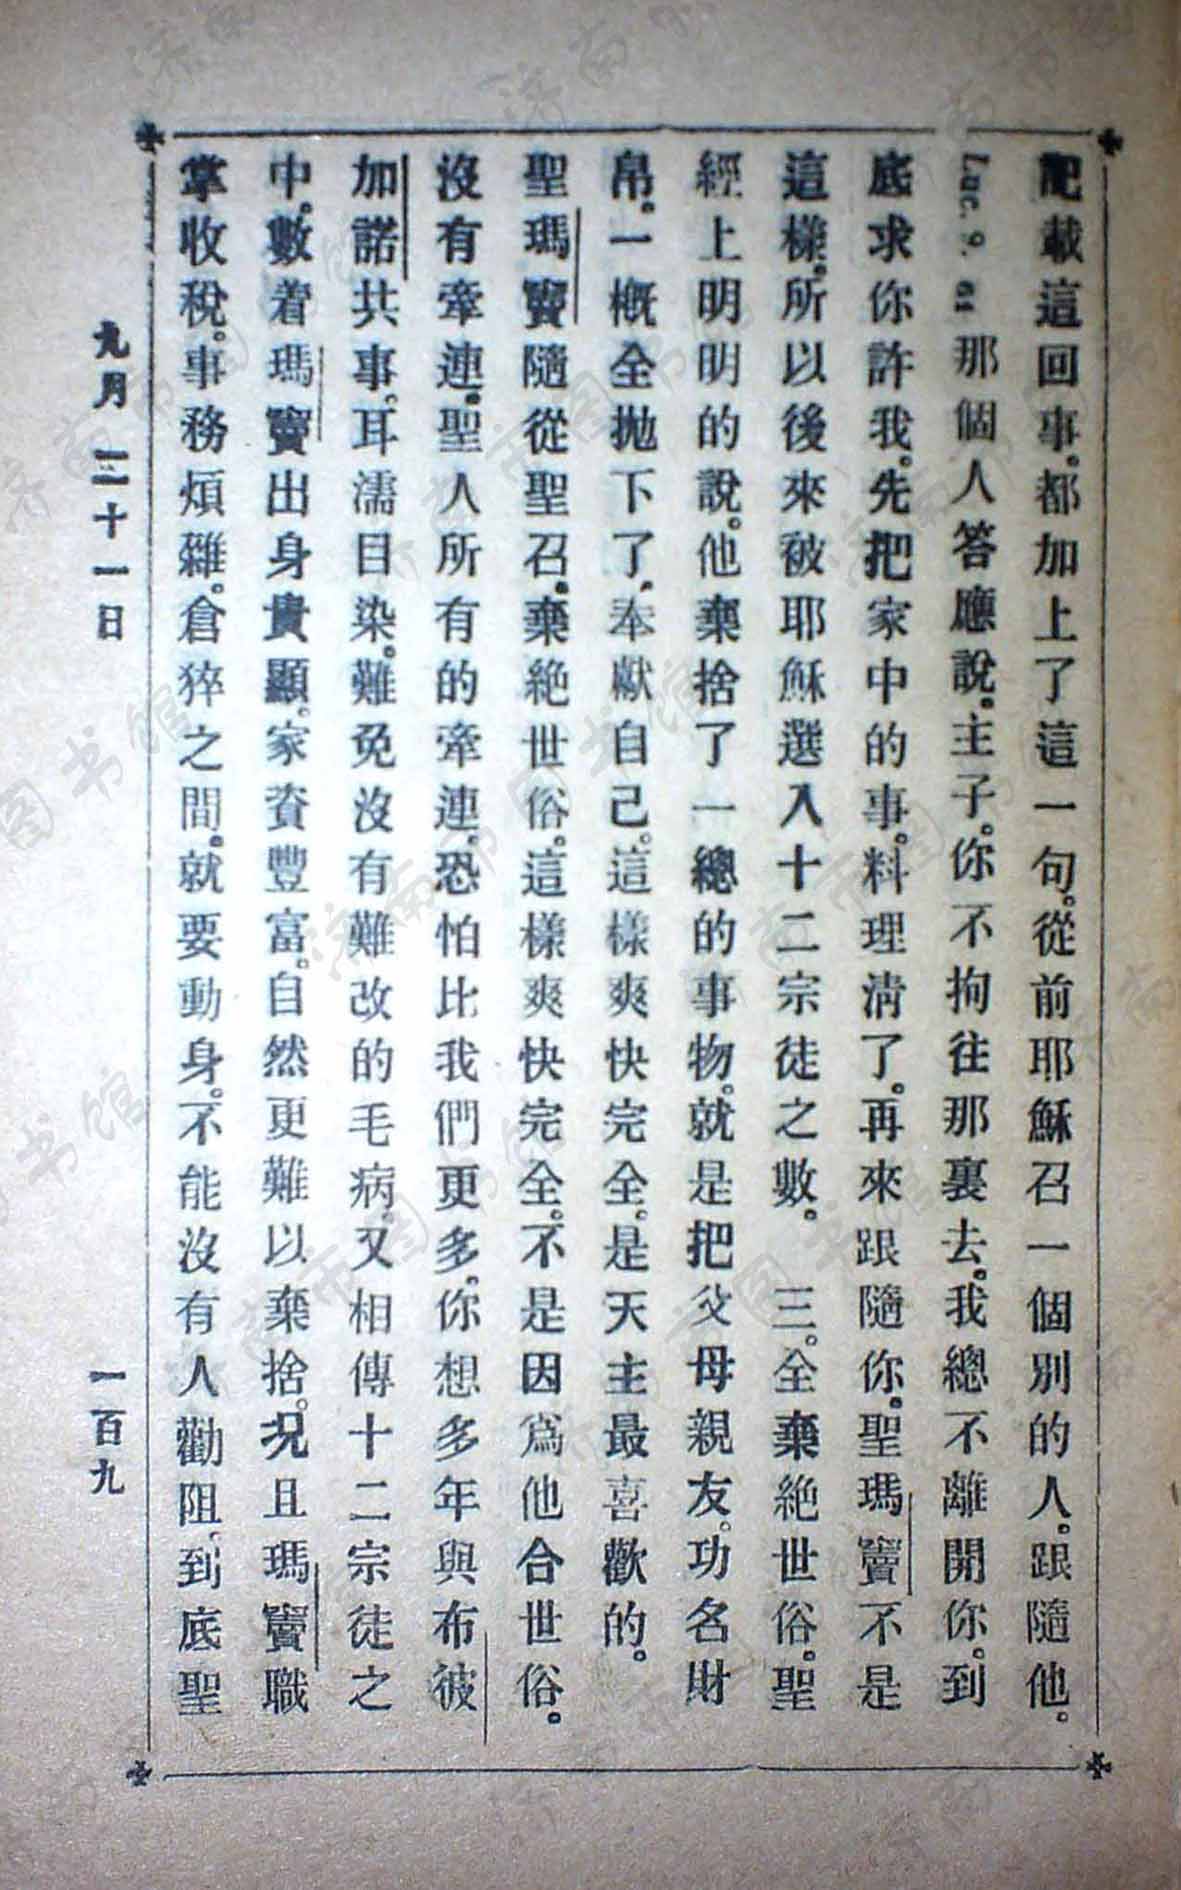 記載這回事。都加上了這一句。從前耶穌召一個別的人。跟隨他。
Luc. 9. 61 那個人答應說。主子。你不拘往那裏去。我總不離開你。到
底求你許我。先把家中的事。料理清了。再來跟隨你。聖瑪竇不是
這樣。所以後來被耶穌選入十二宗徒之數。 三。全棄絕世俗。聖
經上明明的說。他棄捨了一總的事物。就是把父母親友。功名財
帛。一概全拋下了。奉獻自己。這樣爽快完全。是天主最喜歡的。
聖瑪竇隨從聖召。棄絕世俗。這樣爽快完全。不是因爲他合世俗。
沒有牽連。聖人所有的牽連。恐怕比我們更多。你想多年與布彼
加諾共事。耳濡目染。難免沒有難改的毛病。又相傳十二宗徒之
中。數着瑪竇出身貴顯。家資豐富。自然更難以棄捨。况且瑪竇職
掌收稅。事務煩雜。倉猝之間。就要動身。不能沒有人勸阻。到底聖
九月二十一日 一百九